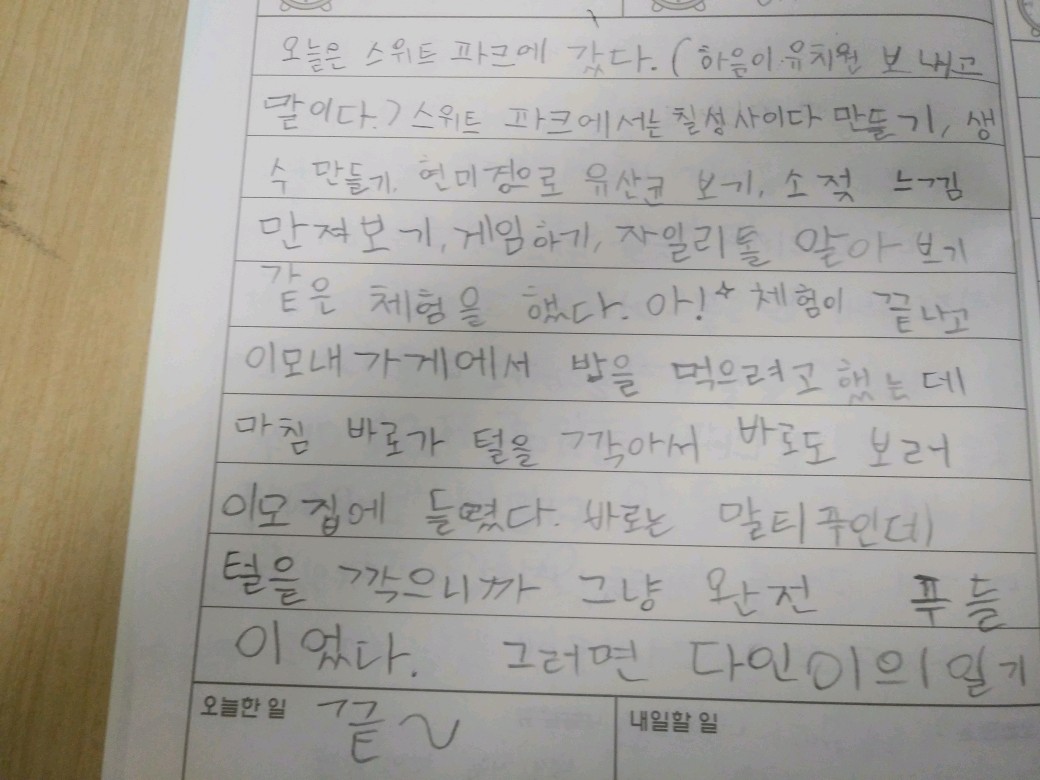 오늘은 스위트 파크에 갔다. (하음이 유치원 보내고
말이다.) 스위트 파크에서는 칠성사이다 만들기, 생
수 만들기, 현미경으로 유산균 보기, 소젖 느낌
만져보기, 게임하기, 자일리톨 알아보기
같은 체험을 했다. 아!☆ 체험이 끝나고
이모내 가게에서 밥을 먹으려고 했는데
마침 바로가 털을 깎아서 바로도 보러
이모 집에 들렸다. 바로는 말티푸인데
털을 깎으니까 그냥 완전 푸들
이었다. 그러면 다인이의 일기
오늘한 일 끝~
내일할 일